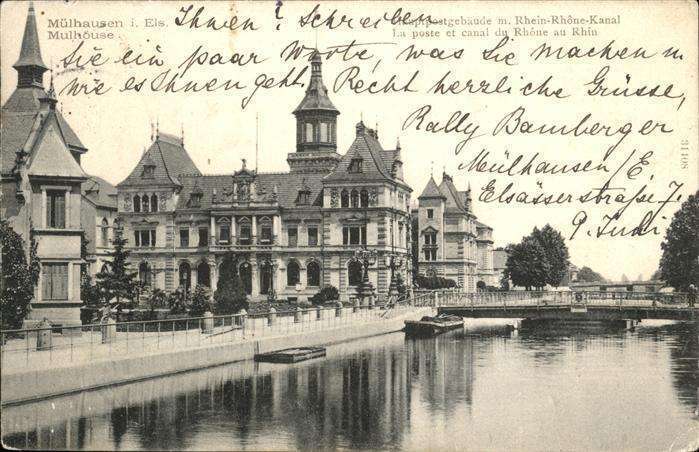 Mülhausen i. Els.
Mulhouse
Hauptpostgebäude m. Rhein-Rhône-Kanal
La poste et canal du Rhône au Rhin
Ihnen? Schreiben
Sie ein paar Worte, was Sie machen u.
wie es Ihnen geht. Recht herzliche Grüsse,
Rally Bamberger
Mülhausen/E,
Elsässerstraße 7.
9. Juni
31108